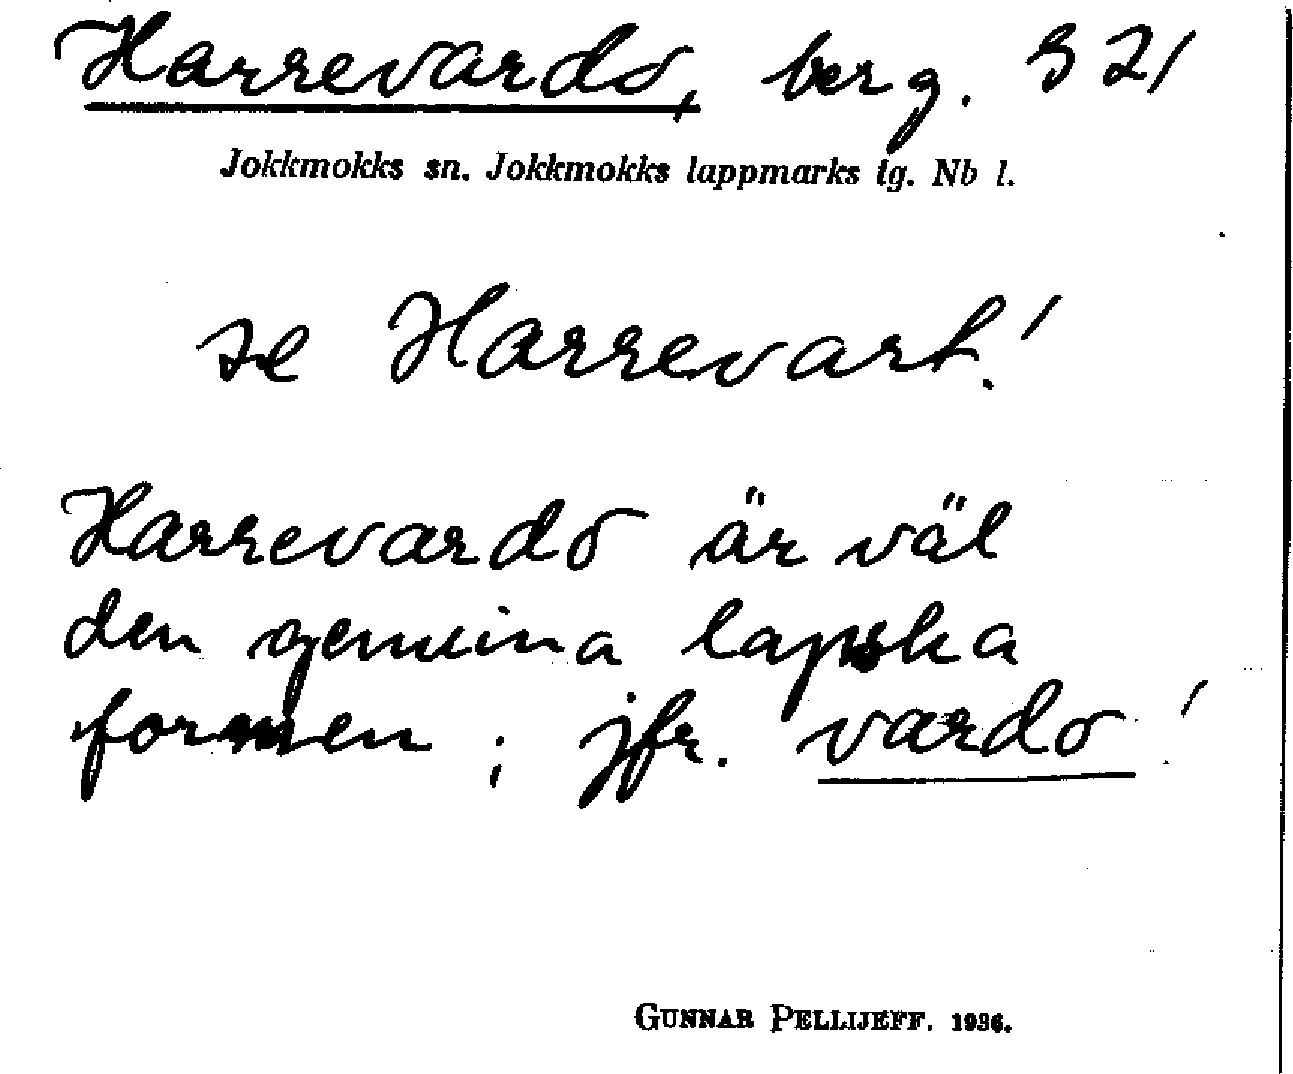 Harrevardo, berg. 321
Jokkmokks sn. Jokkmokks lappmarks tg. Nb l.
se Harrevart!
Harrevardo är väl
den genuina lapska
formen; jfr. vardo!
GUNNAR PELLIJEFF. 1936.